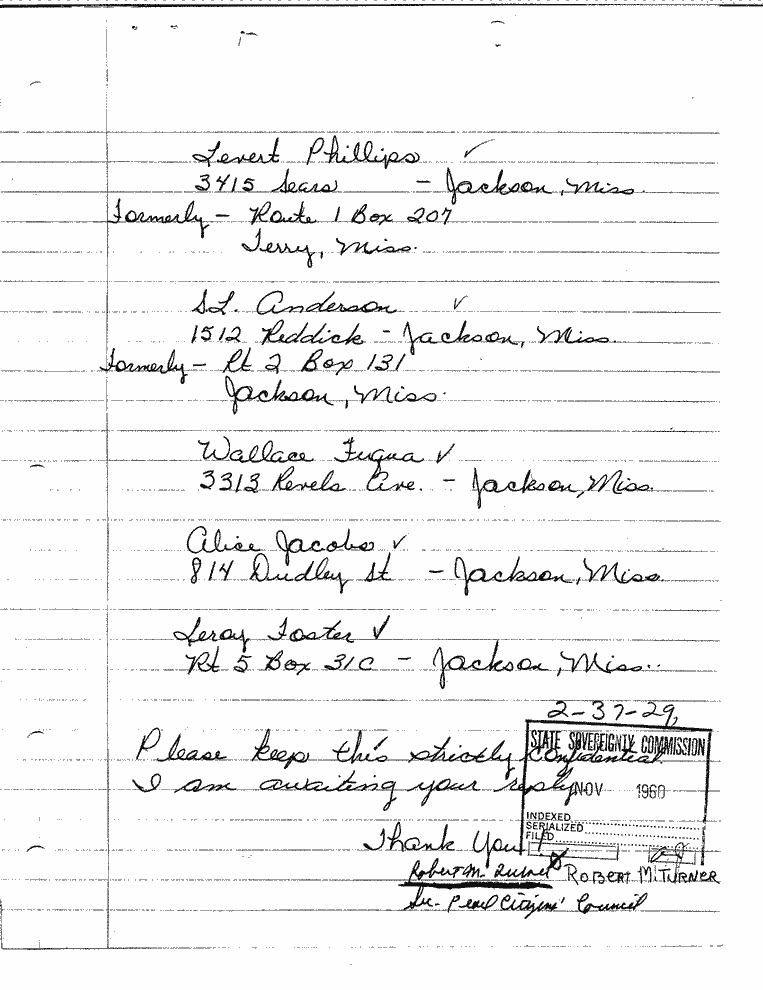 Levert Phillips ✓
3415 Sears - Jackson, Miss.
Formerly - Route 1 Box 207
Terry, Miss.
S.L. Anderson ✓
1512 Reddick - Jackson, Miss.
Formerly - Rt 2 Box 131
Jackson, Miss.
Wallace Fuqua ✓
3313 Revels Ave. - Jackson, Miss.
Alice Jacobs ✓
814 Dudley St - Jackson, Miss.
Leroy Foster ✓
Rt 5 Box 31C - Jackson, Miss.
2-37-29,
Please keep this strictly Confidential
I am awaiting your reply.
STATE SOVEREIGNTY COMMISSION
NOV 1960
INDEXED
SERIALIZED
FILED
Thank You
Robert M. Turner ROBERT M. TURNER
Sec- Pearl Citizens' Council